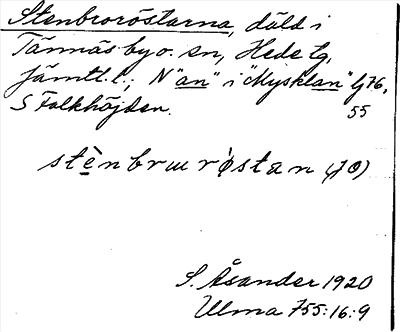 Stenbroröstarna, däld i
Tännäs by o. sn, Hede tg,
Jämtl. l.; N "an" i "Mysklan" Gj 76,
S Falkhöjden. 55
stènbrɯrøstan (70)
S. Åsander 1920
Ulma 755:16:9